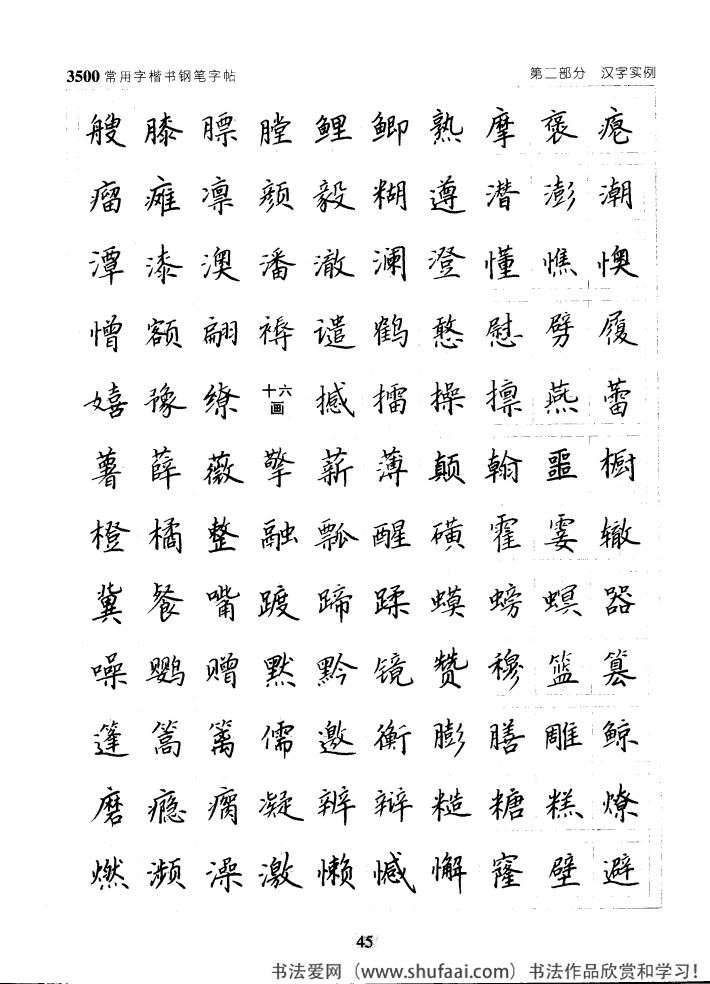 3500常用字楷书钢笔字帖 第二部分 汉字实例
艘 膝 膘 膛 鲤 鲫 熟 摩 褒 瘪
瘤 瘫 凛 颜 毅 糊 遵 潜 澎 潮
潭 漆 澳 潘 澈 澜 澄 懂 憔 懊
憎 额 翩 褥 谴 鹤 憨 慰 劈 履
嬉 豫 缭 十六画 撼 擂 操 擅 燕 蕾
薯 薛 薇 擎 薪 薄 颠 翰 噩 橱
橙 橘 整 融 瓢 醒 磺 霍 霎 辙
冀 餐 嘴 踱 蹄 蹂 蟆 螃 螟 器
噪 鹦 赠 默 黔 镜 赞 穆 篮 篡
篷 篙 篱 儒 邀 衡 膨 膳 雕 鲸
磨 瘾 瘸 凝 辨 辩 糙 糖 糕 燎
燃 濒 澡 激 懒 憾 懈 窿 壁 避
45
书法爱网（www.shufaai.com）书法作品欣赏和学习！